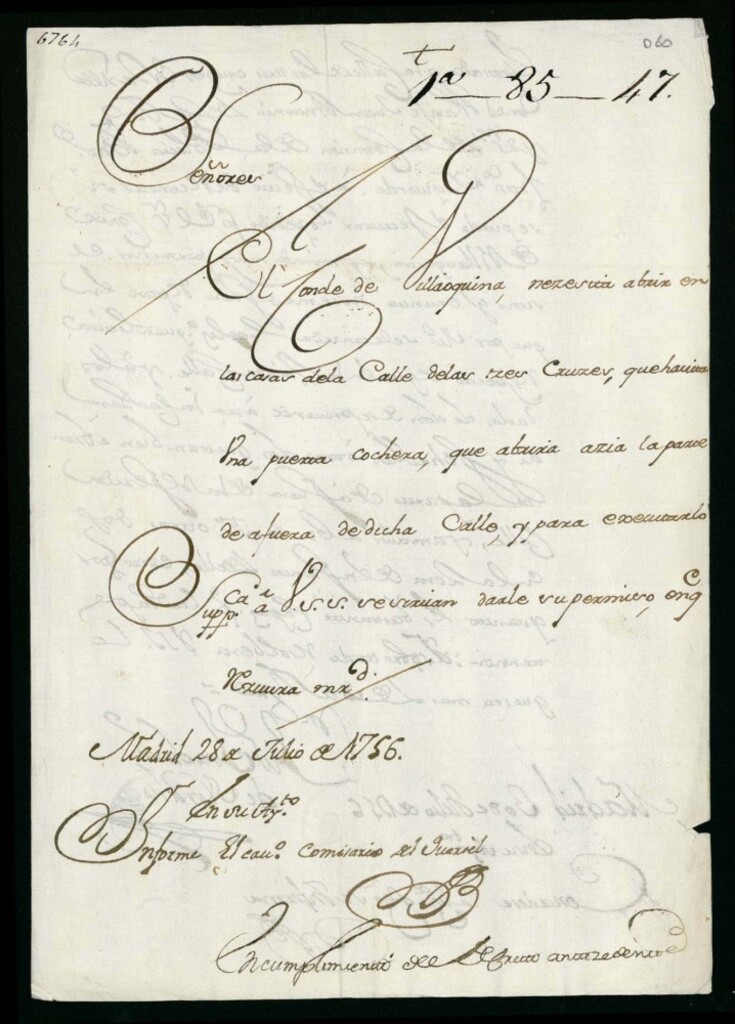 6764
060
1ª — 85 — 47.
Señores
El Conde de Villaoquina, nezesita abrir en
las casas dela Calle delas tres Cruzes, que havita
Vna puerta cochera, que abrira azia la parte
de afuera de dicha Calle, y para executarlo
Suppca. a V.S.S. se sirvan darle su permiso, en q
Rzivira mrd.
Madrid 28 de Julio de 1756.
En su Aytto
Informe El cavo. Comisario del Quartel
En cumplimiento del Decreto antezedente